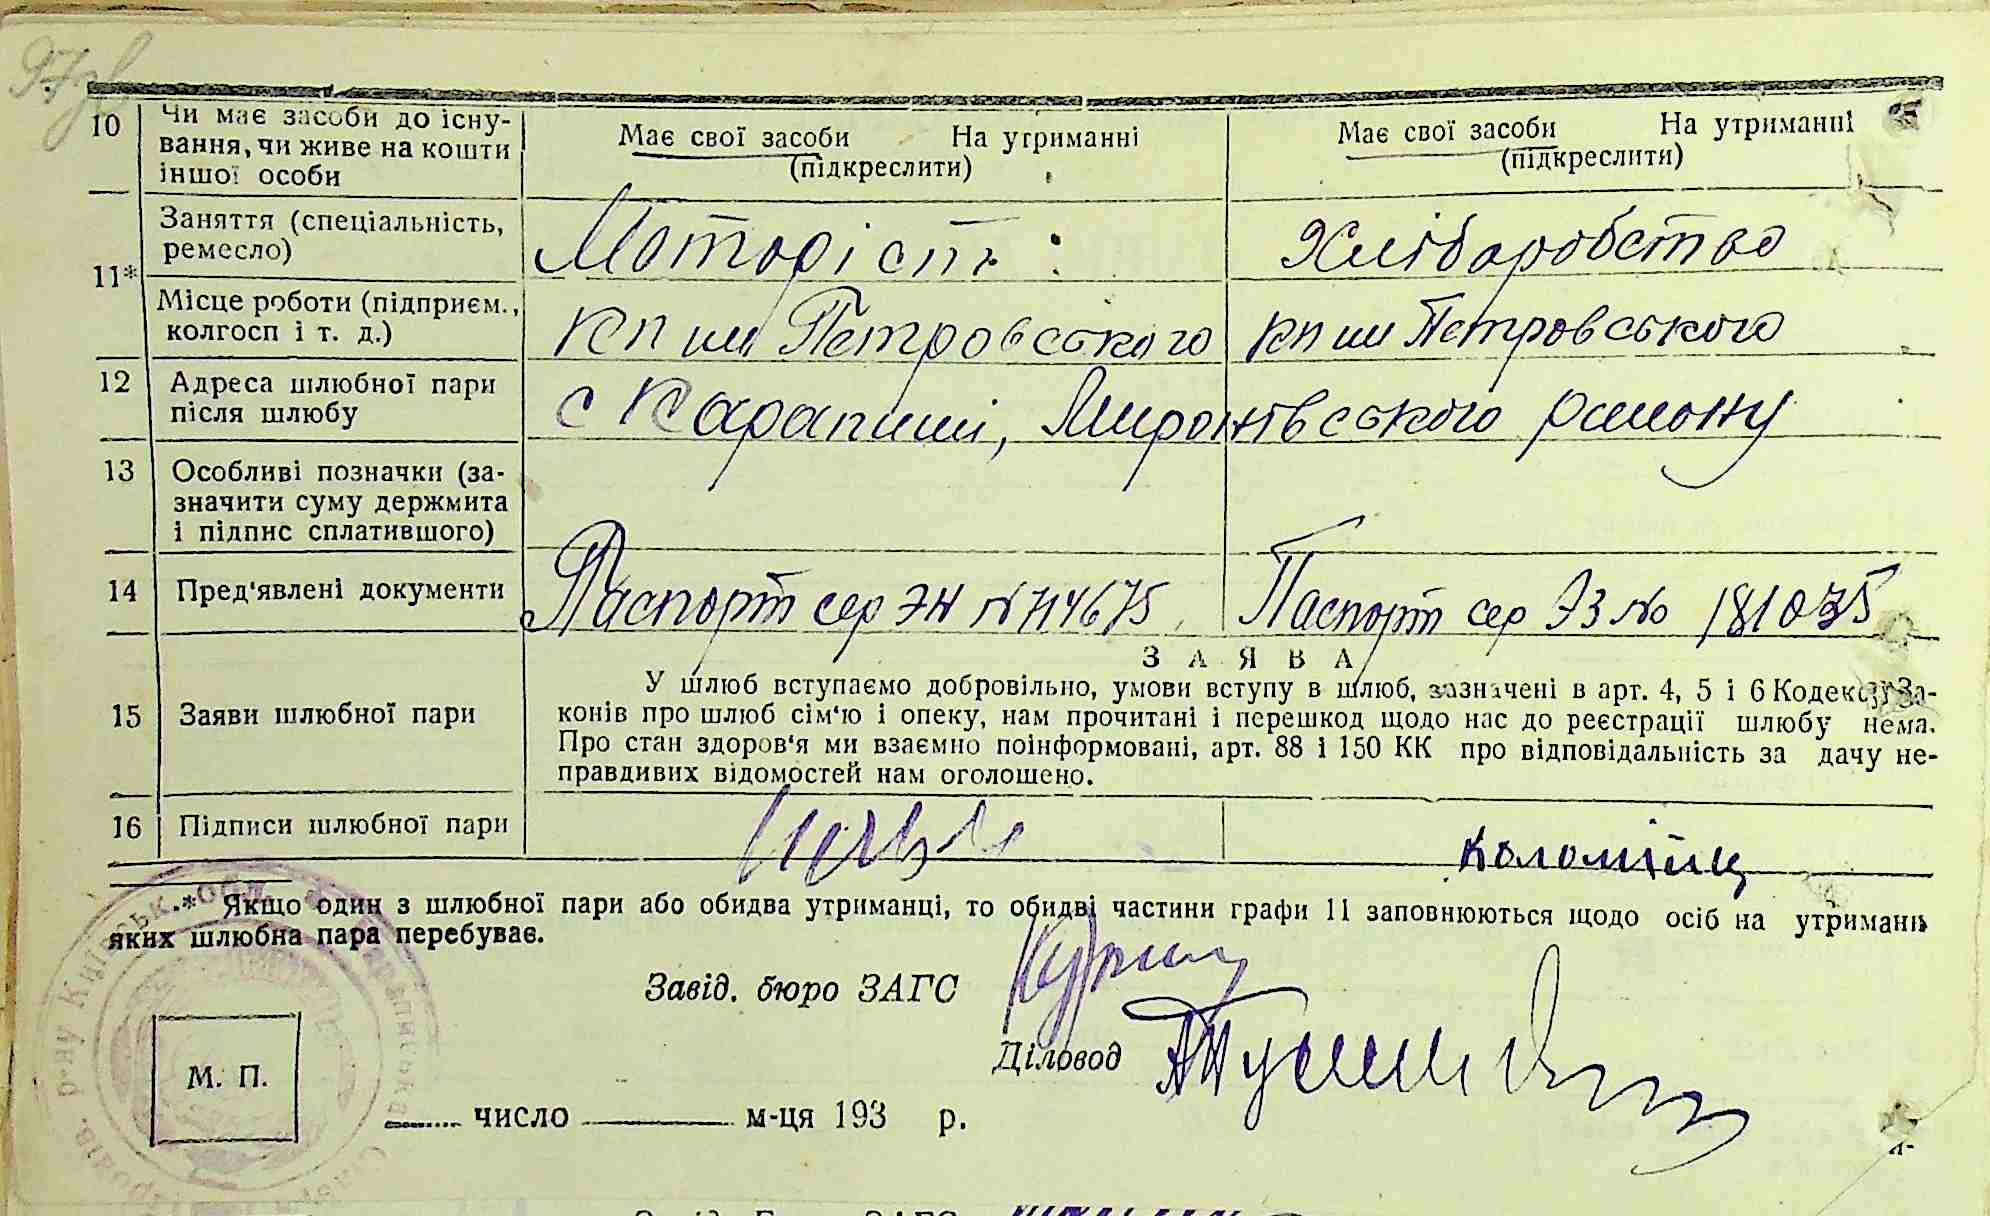 97
10 Чи має засоби до існу-
вання, чи живе на кошти
іншої особи
Має свої засоби На утриманні
(підкреслити)
Має свої засоби На утриманні
(підкреслити)
11*
Заняття (спеціальність,
ремесло)
Моторіст
Хліборобство
Місце роботи (підприєм.,
колгосп і т. д.)
КП им Петровського
КП им Петровського
12 Адреса шлюбної пари
після шлюбу
с Карапиші, Миронівського району
13 Особливі позначки (за-
значити суму держмита
і підпис сплатившого)
14 Пред'явлені документи
Паспорт сер ЭН №
Паспорт сер ЭЗ №
ЗАЯВА
15 Заяви шлюбної пари
У шлюб вступаємо добровільно, умови вступу в шлюб, зазначені в арт. 4, 5 і 6 Кодексу За-
конів про шлюб сім'ю і опеку, нам прочитані і перешкод щодо нас до реєстрації шлюбу нема.
Про стан здоров'я ми взаємно поінформовані, арт. 88 і 150 КК про відповідальність за дачу не-
правдивих відомостей нам оголошено.
16 Підписи шлюбної пари
Коломієць
* Якщо один з шлюбної пари або обидва утриманці, то обидві частини графи 11 заповнюються щодо осіб на утриманні
яких шлюбна пара перебуває.
Завід. бюро ЗАГС
Діловод
М. П.
число м-ця 193 р.